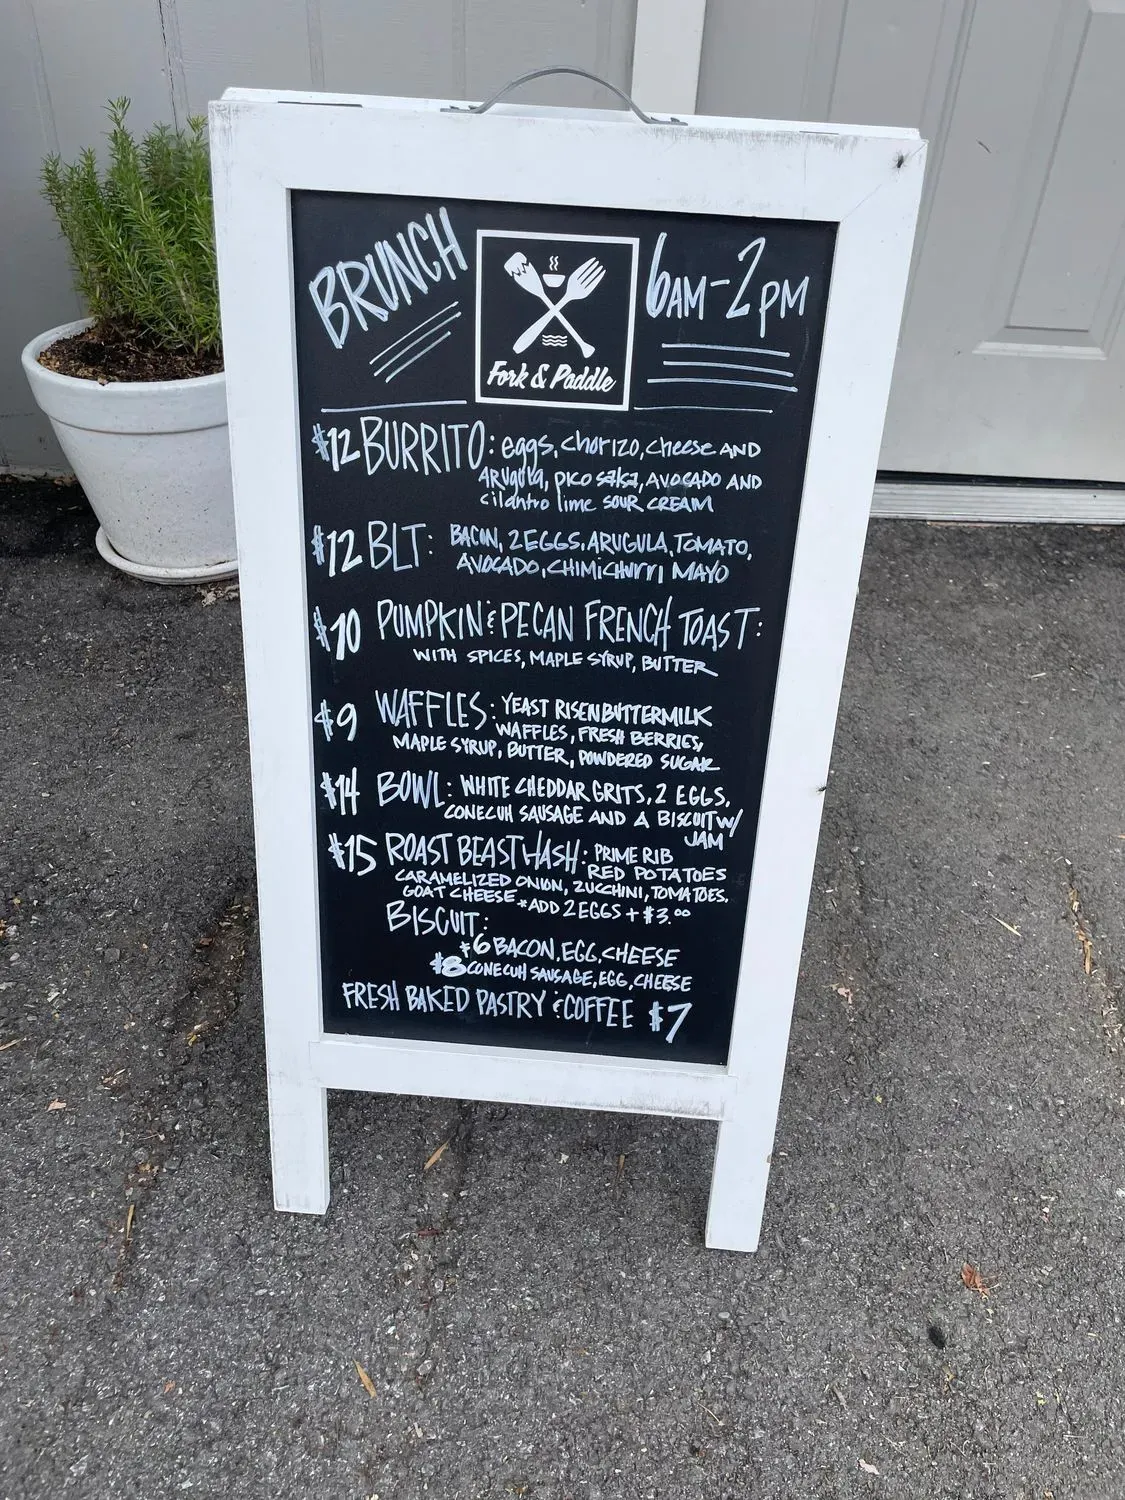 BRUNCH
Fork & Paddle
6AM-2PM
$12 BURRITO: eggs, chorizo, cheese AND
ARugula, pico salsa, AVOCADO AND
cilantro lime SOUR CREAM
$12 BLT: BACON, 2 EGGS, ARUGULA, TOMATO,
AVOCADO, CHIMICHURRI, MAYO
$10 PUMPKIN & PECAN FRENCH TOAST:
WITH SPICES, MAPLE SYRUP, BUTTER
$9 WAFFLES: YEAST RISEN BUTTERMILK
WAFFLES, FRESH BERRIES,
MAPLE SYRUP, BUTTER, POWDERED SUGAR
$14 BOWL: WHITE CHEDDAR GRITS, 2 EGGS,
CONECUH SAUSAGE AND A BISCUIT W/
JAM
$15 ROAST BEAST HASH: PRIME RIB
RED POTATOES
CARAMELIZED ONION, ZUCCHINI, TOMATOES,
GOAT CHEESE *ADD 2 EGGS + $3.00
BISCUIT:
$6 BACON, EGG, CHEESE
$8 CONECUH SAUSAGE, EGG, CHEESE
FRESH BAKED PASTRY & COFFEE $7